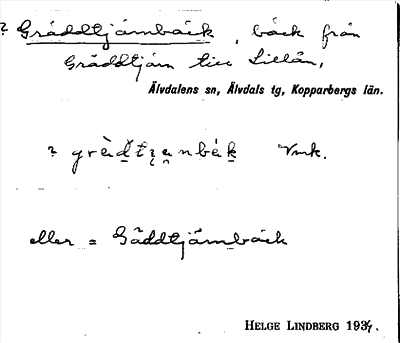 ? Gräddtjärnbäck, bäck från
Gräddtjärn till Lillån,
Älvdalens sn, Älvdals tg, Kopparbergs län.
? Vmk.
eller = Gäddtjärnbäck
HELGE LINDBERG 1937.